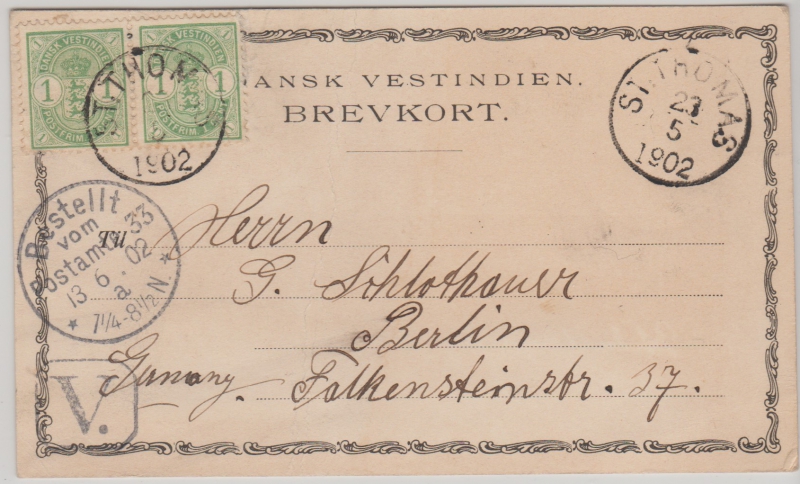 1 DANSK VESTINDIEN 1
1 1
POSTFRIM
1 DANSK VESTINDIEN 1
1 1
POSTFRIM
ST. THOMAS
1902
DANSK VESTINDIEN.
BREVKORT.
ST. THOMAS
23
5
1902
Til
Bestellt
vom
Postamte 33
13 6. 02
a.
* 7 1/4-8 1/2 N. *
Herrn
G. Schlothauer
Berlin
Germany. Falkensteinstr. 37.
V.